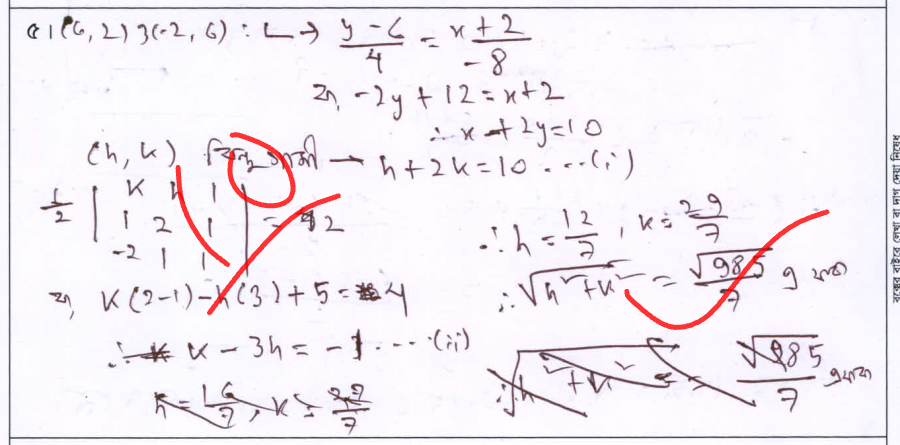 ৫। (6, 2) ও (-2, 6) : L → (y-6)/4 = (x+2)/-8
বা, -2y + 12 = x+2
∴ x + 2y = 10
(h, k) বিন্দুগামী — h + 2k = 10 ....(i)
1/2 | k h 1 | 1 2 1 | -2 1 1 | = 2
বা, k(2-1) - h(3) + 5 = 4
∴ k - 3h = -1 ....(ii)
h = 16/7, k =
∴ h = 12/7, k = 29/7
∴ √(h² + k²) = √985/7 একক
∴ √h² + k² = √985/7 একক
বক্সের বাইরে লেখা বা দাগ দেয়া নিষেধ